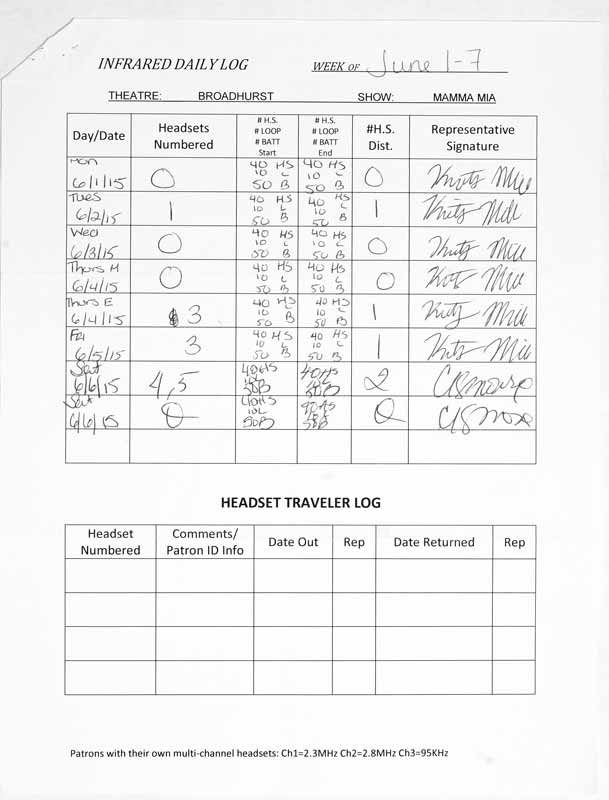 INFRARED DAILY LOG WEEK OF June 1-7
THEATRE: BROADHURST SHOW: MAMMA MIA
Day/Date Headsets Numbered # H.S. # LOOP # BATT Start # H.S. # LOOP # BATT End #H.S. Dist. Representative Signature
Mon 6/1/15 0 40 HS 10 L 50 B 40 HS 10 L 50 B 0
Tues 6/2/15 1 40 HS 10 L 50 B 40 HS 10 L 50 B 1
Wed 6/3/15 0 40 HS 10 L 50 B 40 HS 10 L 50 B 0
Thurs M 6/4/15 0 40 HS 10 L 50 B 40 HS 10 L 50 B 0
Thurs E 6/4/15 3 40 HS 10 L 50 B 40 HS 10 L 50 B 1
Fri 6/5/15 3 40 HS 10 L 50 B 40 HS 10 L 50 B 1
Sat 6/6/15 4,5 40HS 10L 50B 40HS 10L 50B 2
Sat 6/6/15 0 40HS 10L 50B 40HS 10L 50B 0
HEADSET TRAVELER LOG
Headset Numbered Comments/ Patron ID Info Date Out Rep Date Returned Rep
Patrons with their own multi-channel headsets: Ch1=2.3MHz Ch2=2.8MHz Ch3=95KHz